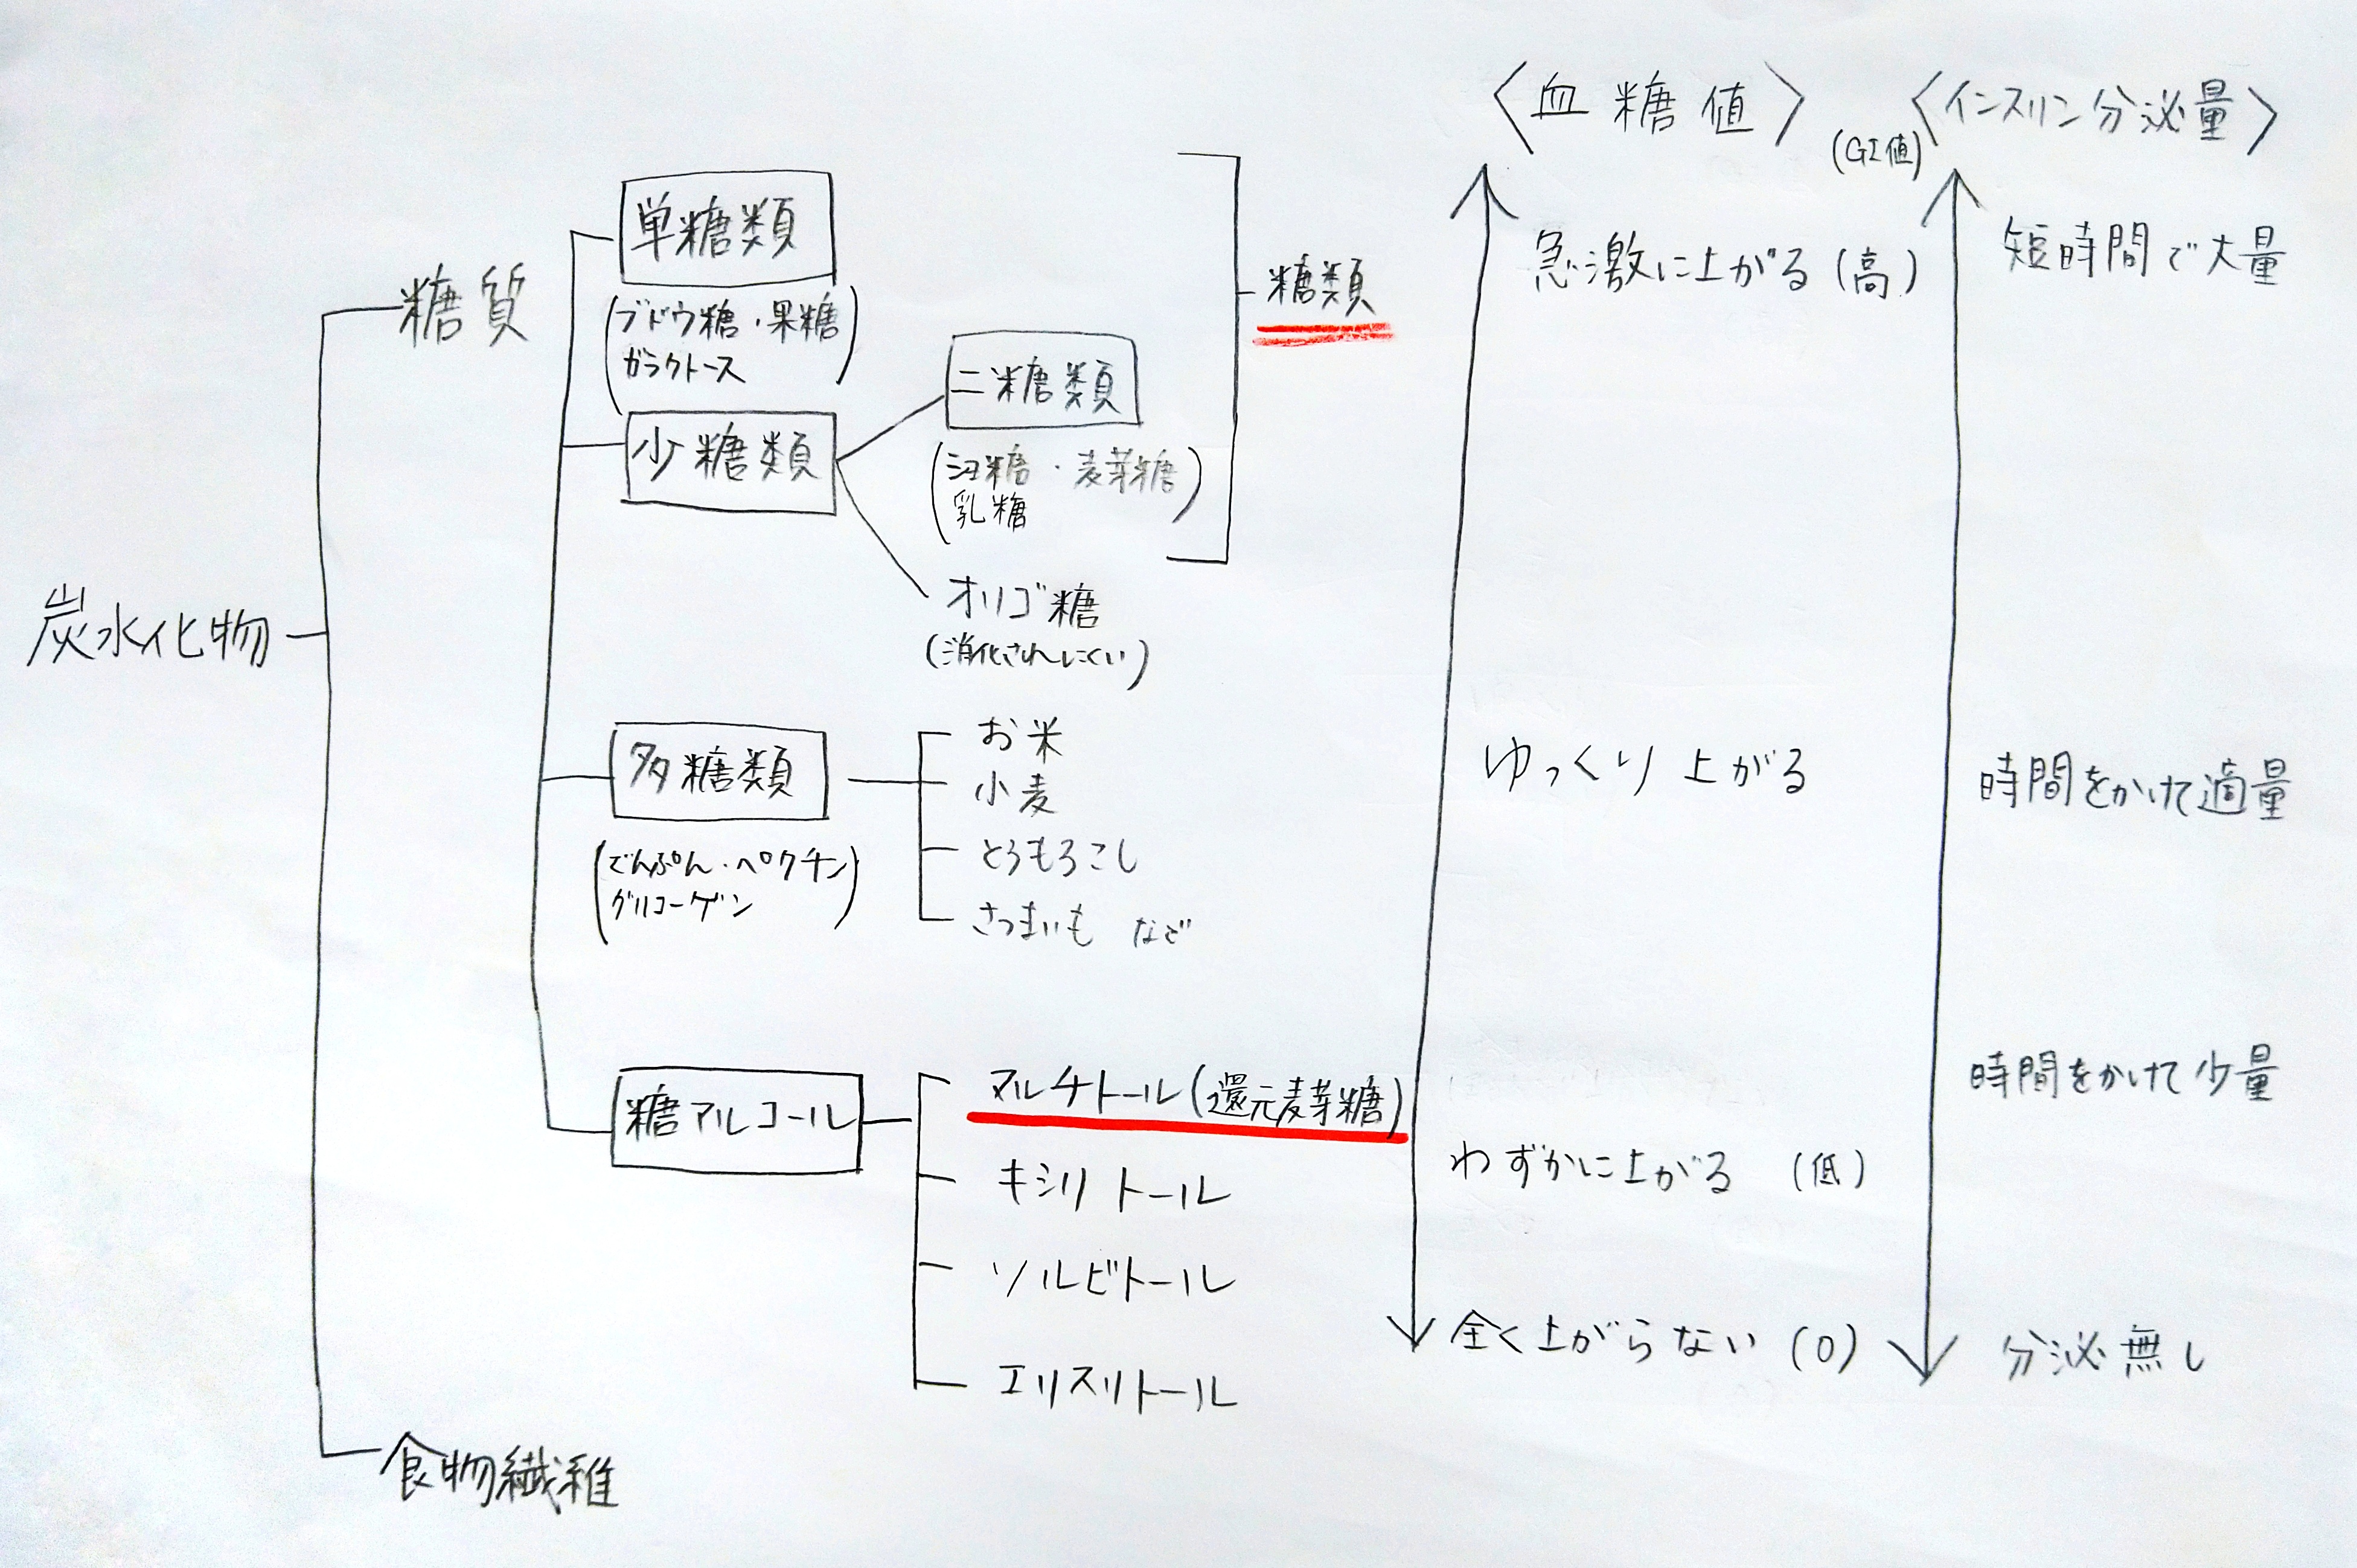 〈血糖値〉
(GI値)
〈インスリン分泌量〉
炭水化物
糖質
単糖類
(ブドウ糖・果糖
ガラクトース)
少糖類
二糖類
糖・麦芽糖
乳糖
オリゴ糖
(消化されにくい)
糖類
多糖類
(でんぷん・ペクチン
グリコーゲン)
お米
小麦
とうもろこし
さつまいも など
糖アルコール
マルチトール(還元麦芽糖)
キシリトール
ソルビトール
エリスリトール
食物繊維
急激に上がる(高)
ゆっくり上がる
わずかに上がる (低)
全く上がらない (0)
短時間で大量
時間をかけて適量
時間をかけて少量
分泌無し